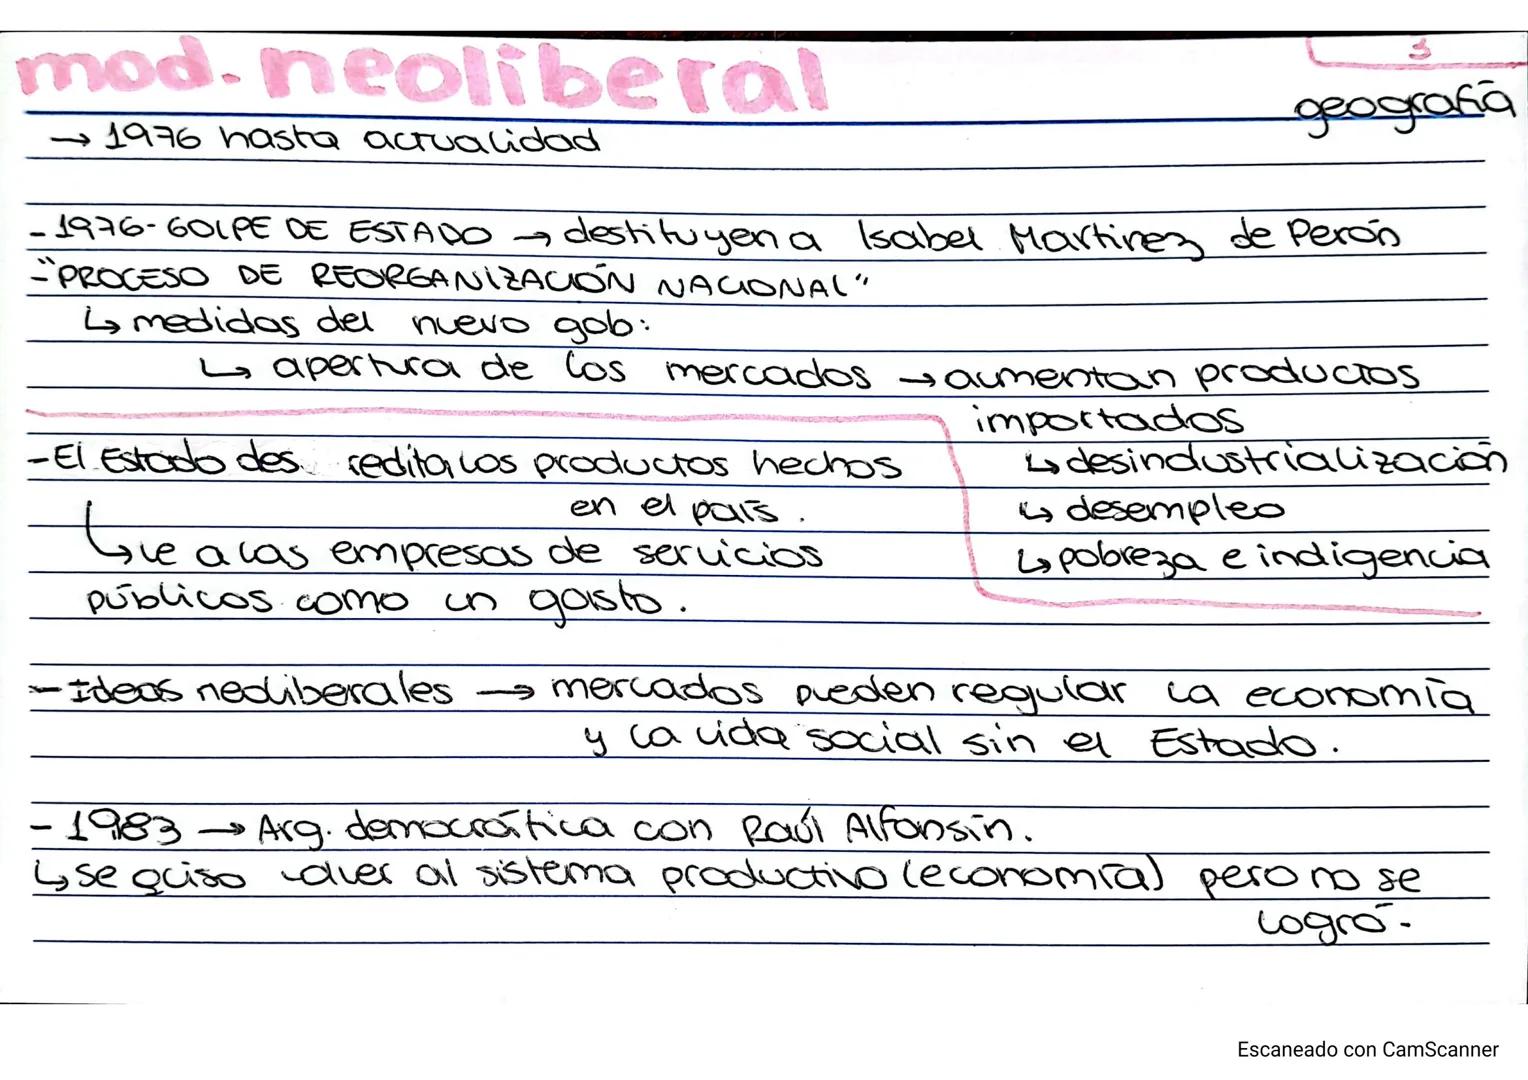 mod. neoliberal
3
geografía
→ 1976 hasta actualidad
- 1976 - GOLPE DE ESTADO → destituyen a Isabel Martinez de Perón
- "PROCESO DE REORGANIZACIÓN NACIONAL"
↳ medidas del nuevo gob:
↳ apertura de los mercados → aumentan productos
importados
↳ desindustrialización
↳ desempleo
↳ pobreza e indigencia
- El Estado des redita los productos hechos
en el país.
↳ ve a las empresas de servicios
públicos como un gasto.
- Ideas neoliberales → mercados pueden regular la economía
y la vida social sin el Estado.
- 1983 → Arg. democrática con Raúl Alfonsín.
↳ se quiso volver al sistema productivo (economía) pero no se
logró.
Escaneado con CamScanner